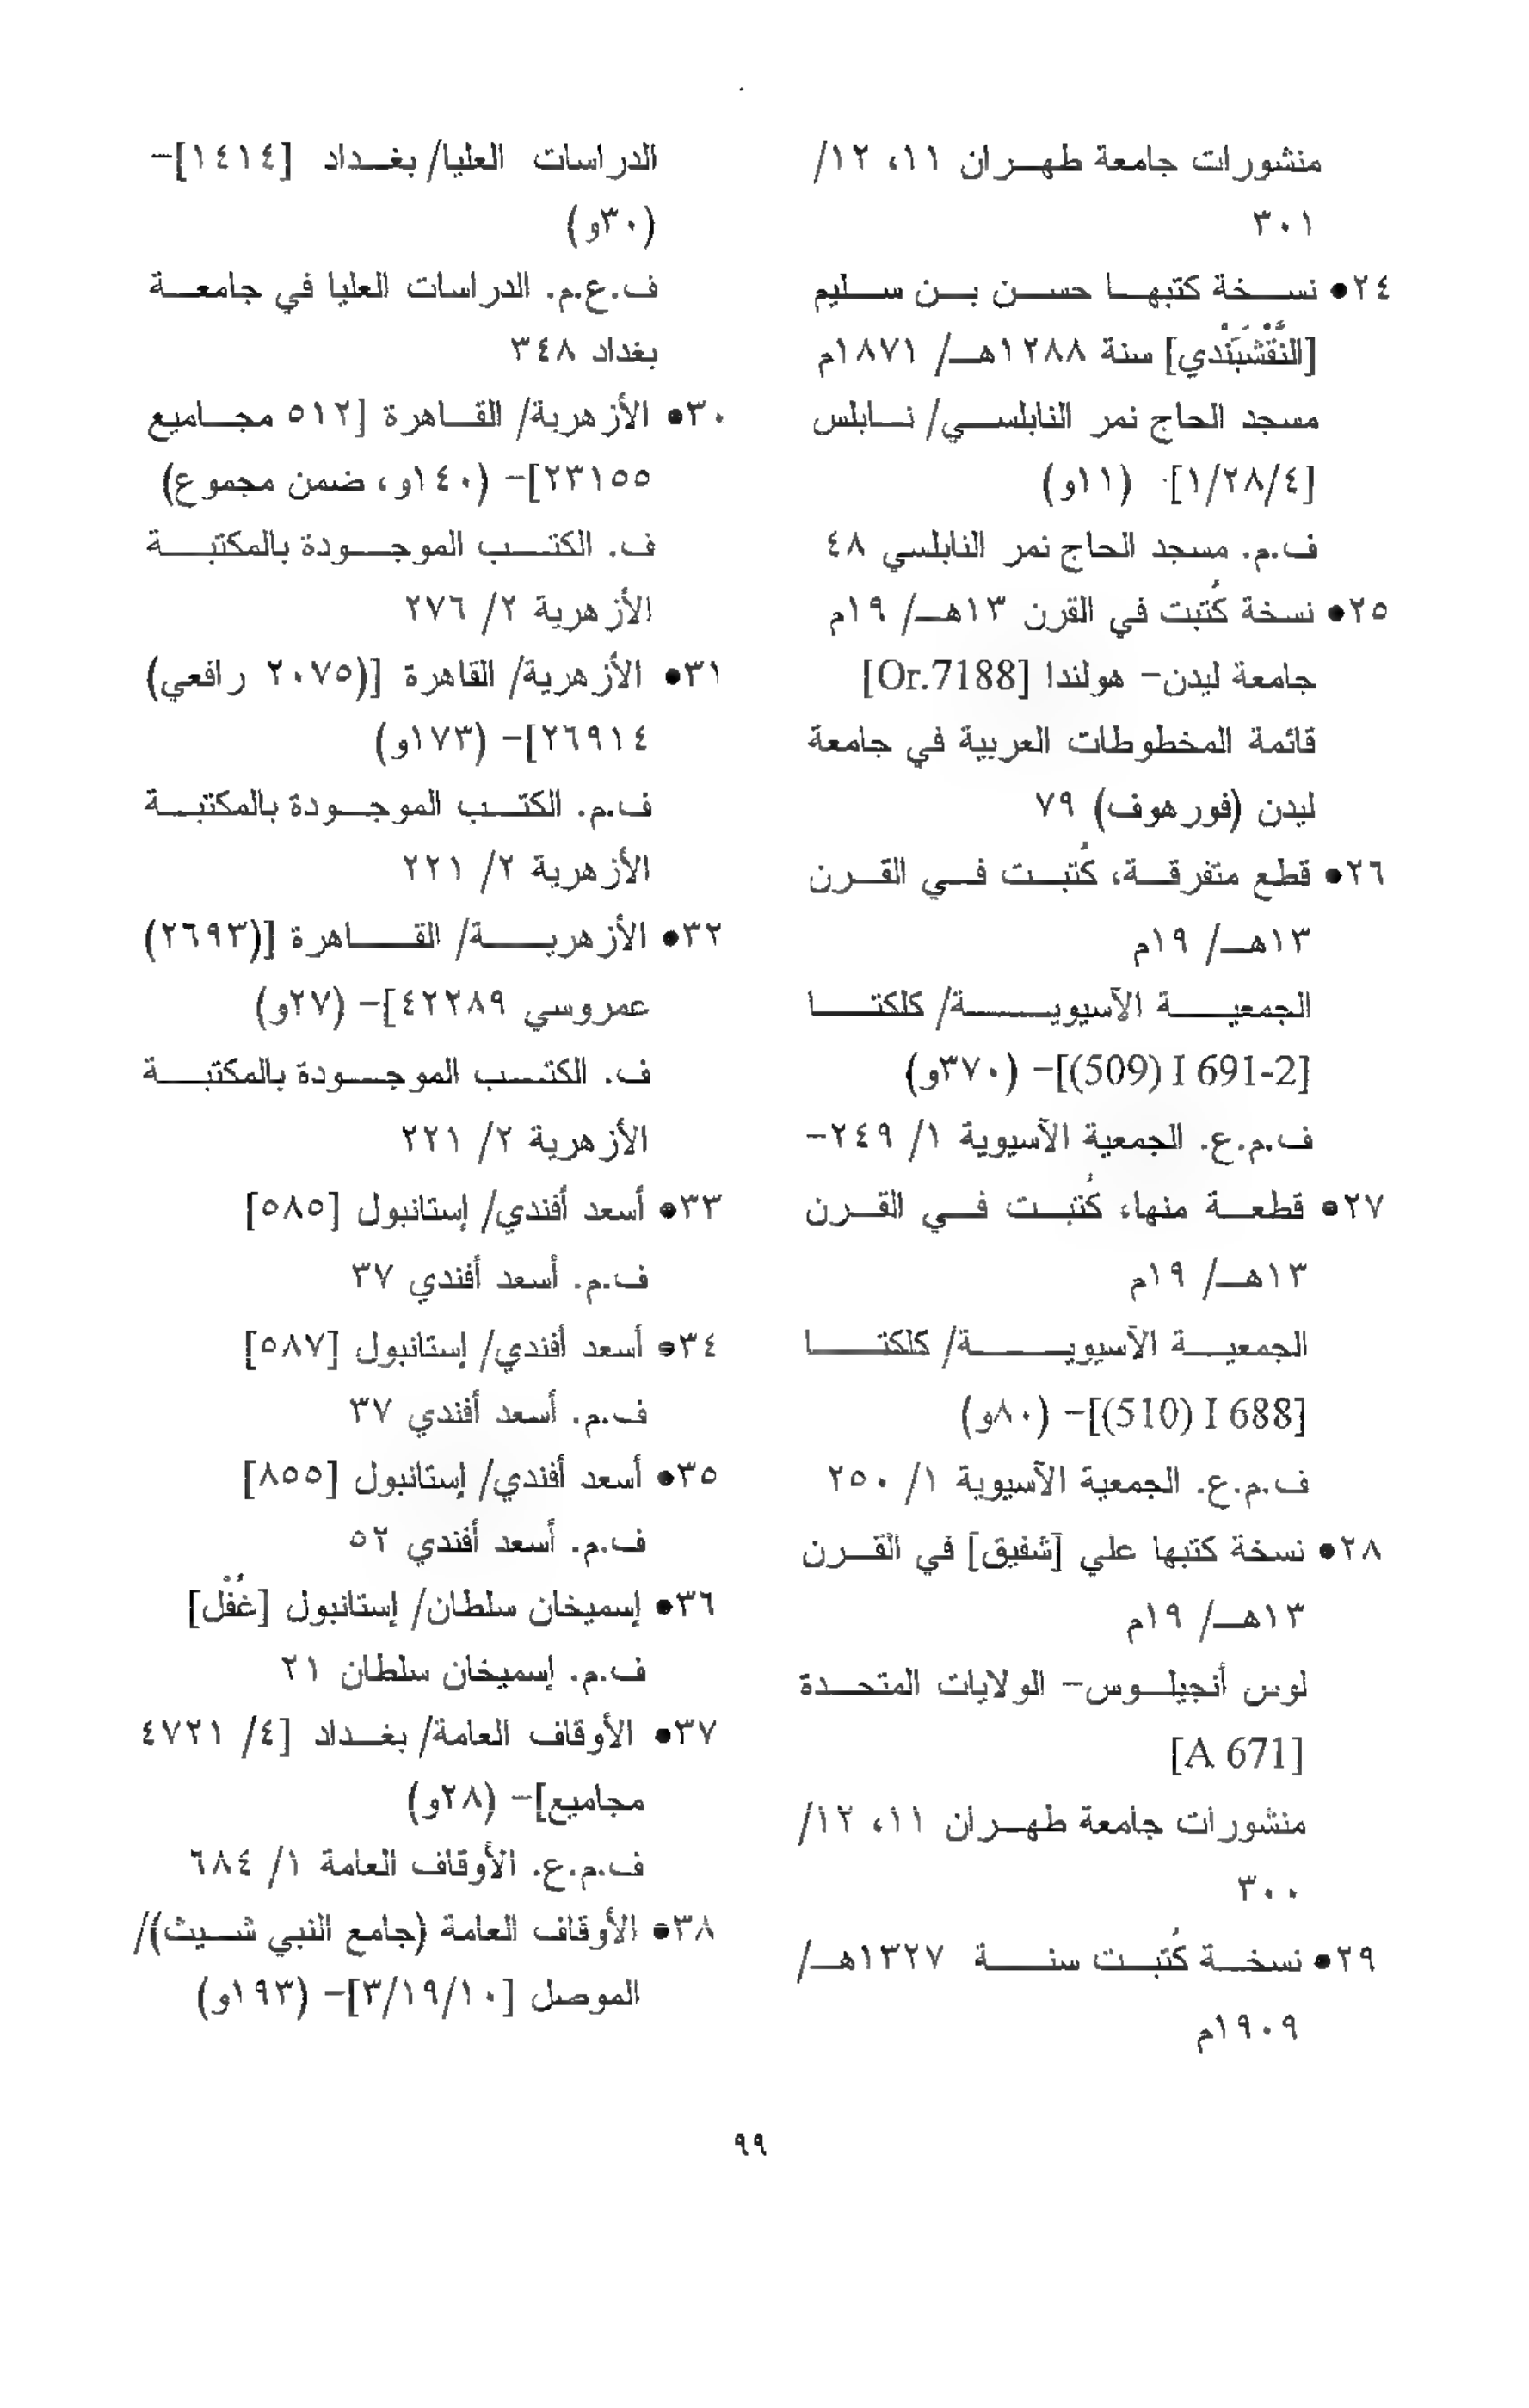 منشورات جامعة طهران ١١، ١٢/
٣٠١
٢٤● نسخة كتبها حسن بن سليم
[النَّقْشَبَنْدي] سنة ١٢٨٨هـ/ ١٨٧١م
مسجد الحاج نمر النابلسي/ نابلس
[١/٢٨/٤] (١١و)
ف.م. مسجد الحاج نمر النابلسي ٤٨
٢٥● نسخة كُتبت في القرن ١٣هـ/ ١٩م
جامعة ليدن- هولندا [Or.7188]
قائمة المخطوطات العربية في جامعة
ليدن (فورهوف) ٧٩
٢٦● قطع متفرقة، كُتبت في القرن
١٣هـ/ ١٩م
الجمعية الآسيوية/ كلكتا
[(509) I 691-2]- (٣٧٠و)
ف.م.ع. الجمعية الآسيوية ١/ ٢٤٩-
٢٧● قطعة منها، كُتبت في القرن
١٣هـ/ ١٩م
الجمعية الآسيوية/ كلكتا
[(510) I 688]- (٨٠و)
ف.م.ع. الجمعية الآسيوية ١/ ٢٥٠
٢٨● نسخة كتبها علي [شفيق] في القرن
١٣هـ/ ١٩م
لوس أنجيلوس- الولايات المتحدة
[A 671]
منشورات جامعة طهران ١١، ١٢/
٣٠٠
٢٩● نسخة كُتبت سنة ١٣٢٧هـ/
١٩٠٩م
الدراسات العليا/ بغداد [١٤١٤]-
(٣٠و)
ف.ع.م. الدراسات العليا في جامعة
بغداد ٣٤٨
٣٠● الأزهرية/ القاهرة [٥١٢ مجاميع
٢٣١٥٥]- (١٤٠و، ضمن مجموع)
ف. الكتب الموجودة بالمكتبة
الأزهرية ٢/ ٢٧٦
٣١● الأزهرية/ القاهرة [(٢٠٧٥ رافعي)
٢٦٩١٤]- (١٧٣و)
ف.م. الكتب الموجودة بالمكتبة
الأزهرية ٢/ ٢٢١
٣٢● الأزهرية/ القاهرة [(٢٦٩٣)
عمروسي ٤٢٢٨٩]- (٢٧و)
ف. الكتب الموجودة بالمكتبة
الأزهرية ٢/ ٢٢١
٣٣● أسعد أفندي/ إستانبول [٥٨٥]
ف.م. أسعد أفندي ٣٧
٣٤● أسعد أفندي/ إستانبول [٥٨٧]
ف.م. أسعد أفندي ٣٧
٣٥● أسعد أفندي/ إستانبول [٨٥٥]
ف.م. أسعد أفندي ٥٢
٣٦● إسميخان سلطان/ إستانبول [غُفْل]
ف.م. إسميخان سلطان ٢١
٣٧● الأوقاف العامة/ بغداد [٤/ ٤٧٢١
مجاميع]- (٢٨و)
ف.م.ع. الأوقاف العامة ١/ ٦٨٤
٣٨● الأوقاف العامة (جامع النبي شيث)/
الموصل [٣/١٩/١٠]- (١٩٣و)
٩٩